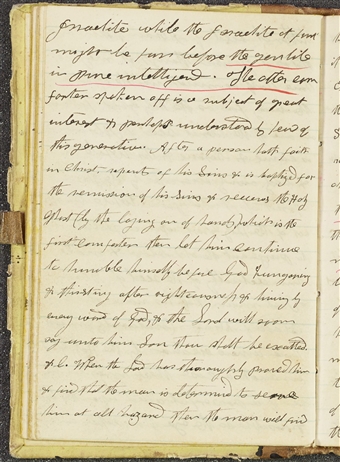 Israelite while the Israelite at first
might be far before the gentile
in pure intelligence. The other com
forter spoken off is a subject of great
interest & perhaps understood by few of
this generation. After a person hath faith
in Christ, repents of his Sins & is baptized for
the remission of his Sins & receives the Holy
Ghost (by the laying on of hands) which is the
first comforter then let him continue
to humble himself before God, hungering
& thirsting after righteousness & living by
every word of God, & the Lord will soon
say unto him Son thou shalt be exalted.
&c. When the Lord has thoroughly proved him
& finds that the man is determined to serve
him at all hazard then the man will find